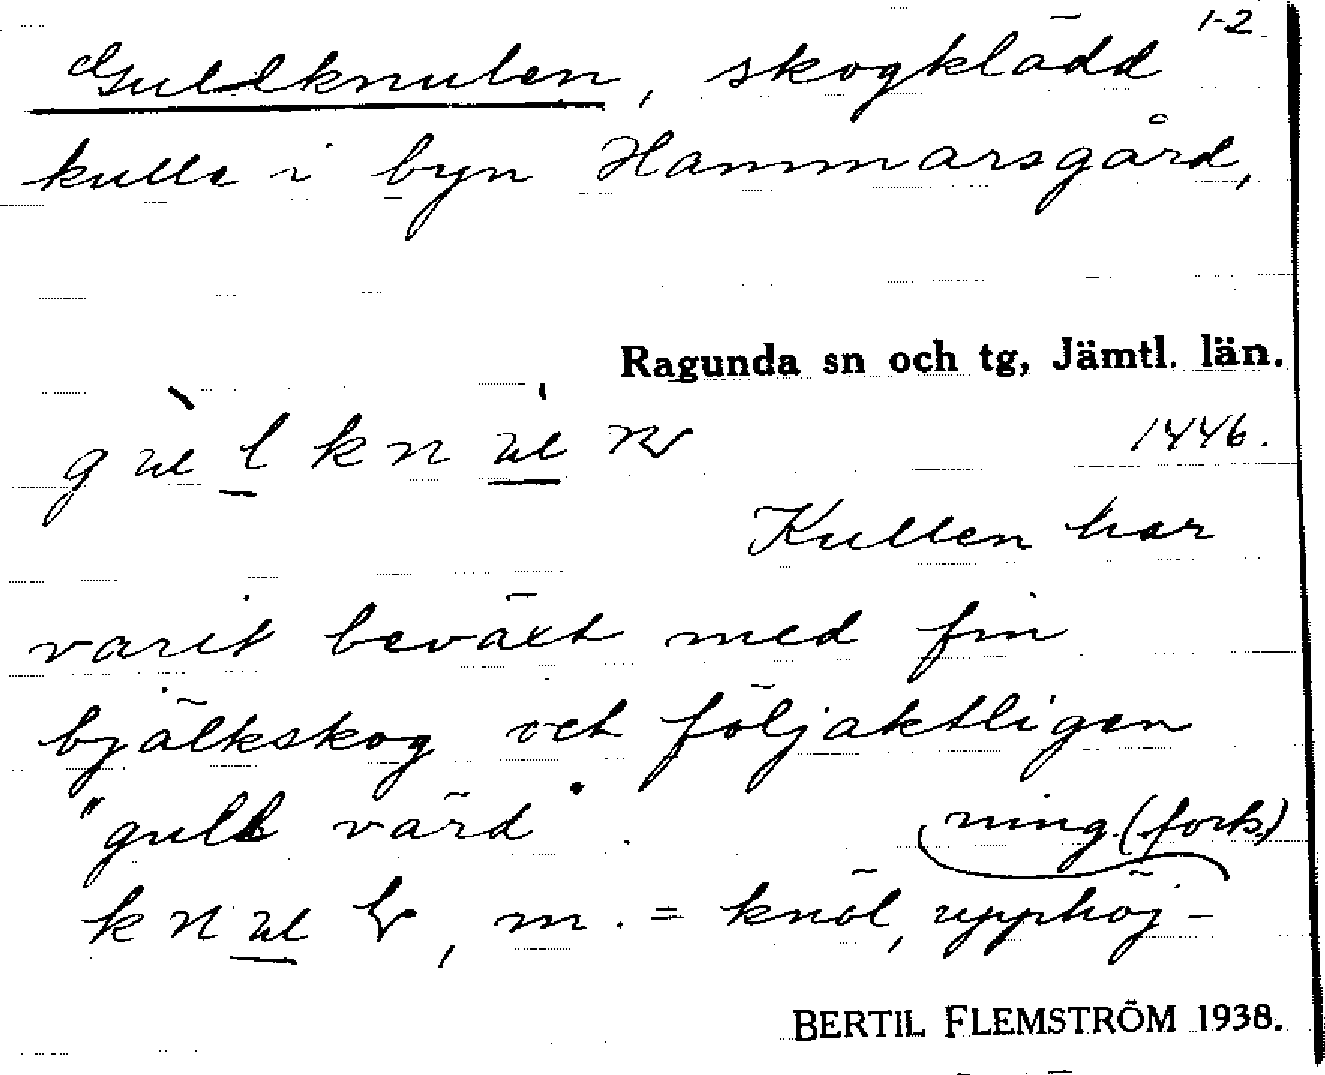 1-2
Guldknulen, skogklädd
kulle i byn Hammarsgård,
Ragunda sn och tg, Jämtl. län.
1446.
Kullen har
varit beväxt med fin
bjälkskog och följaktligen
"gull värd".
ning (forts)
m. = knöl, upphöj-
BERTIL FLEMSTRÖM 1938.